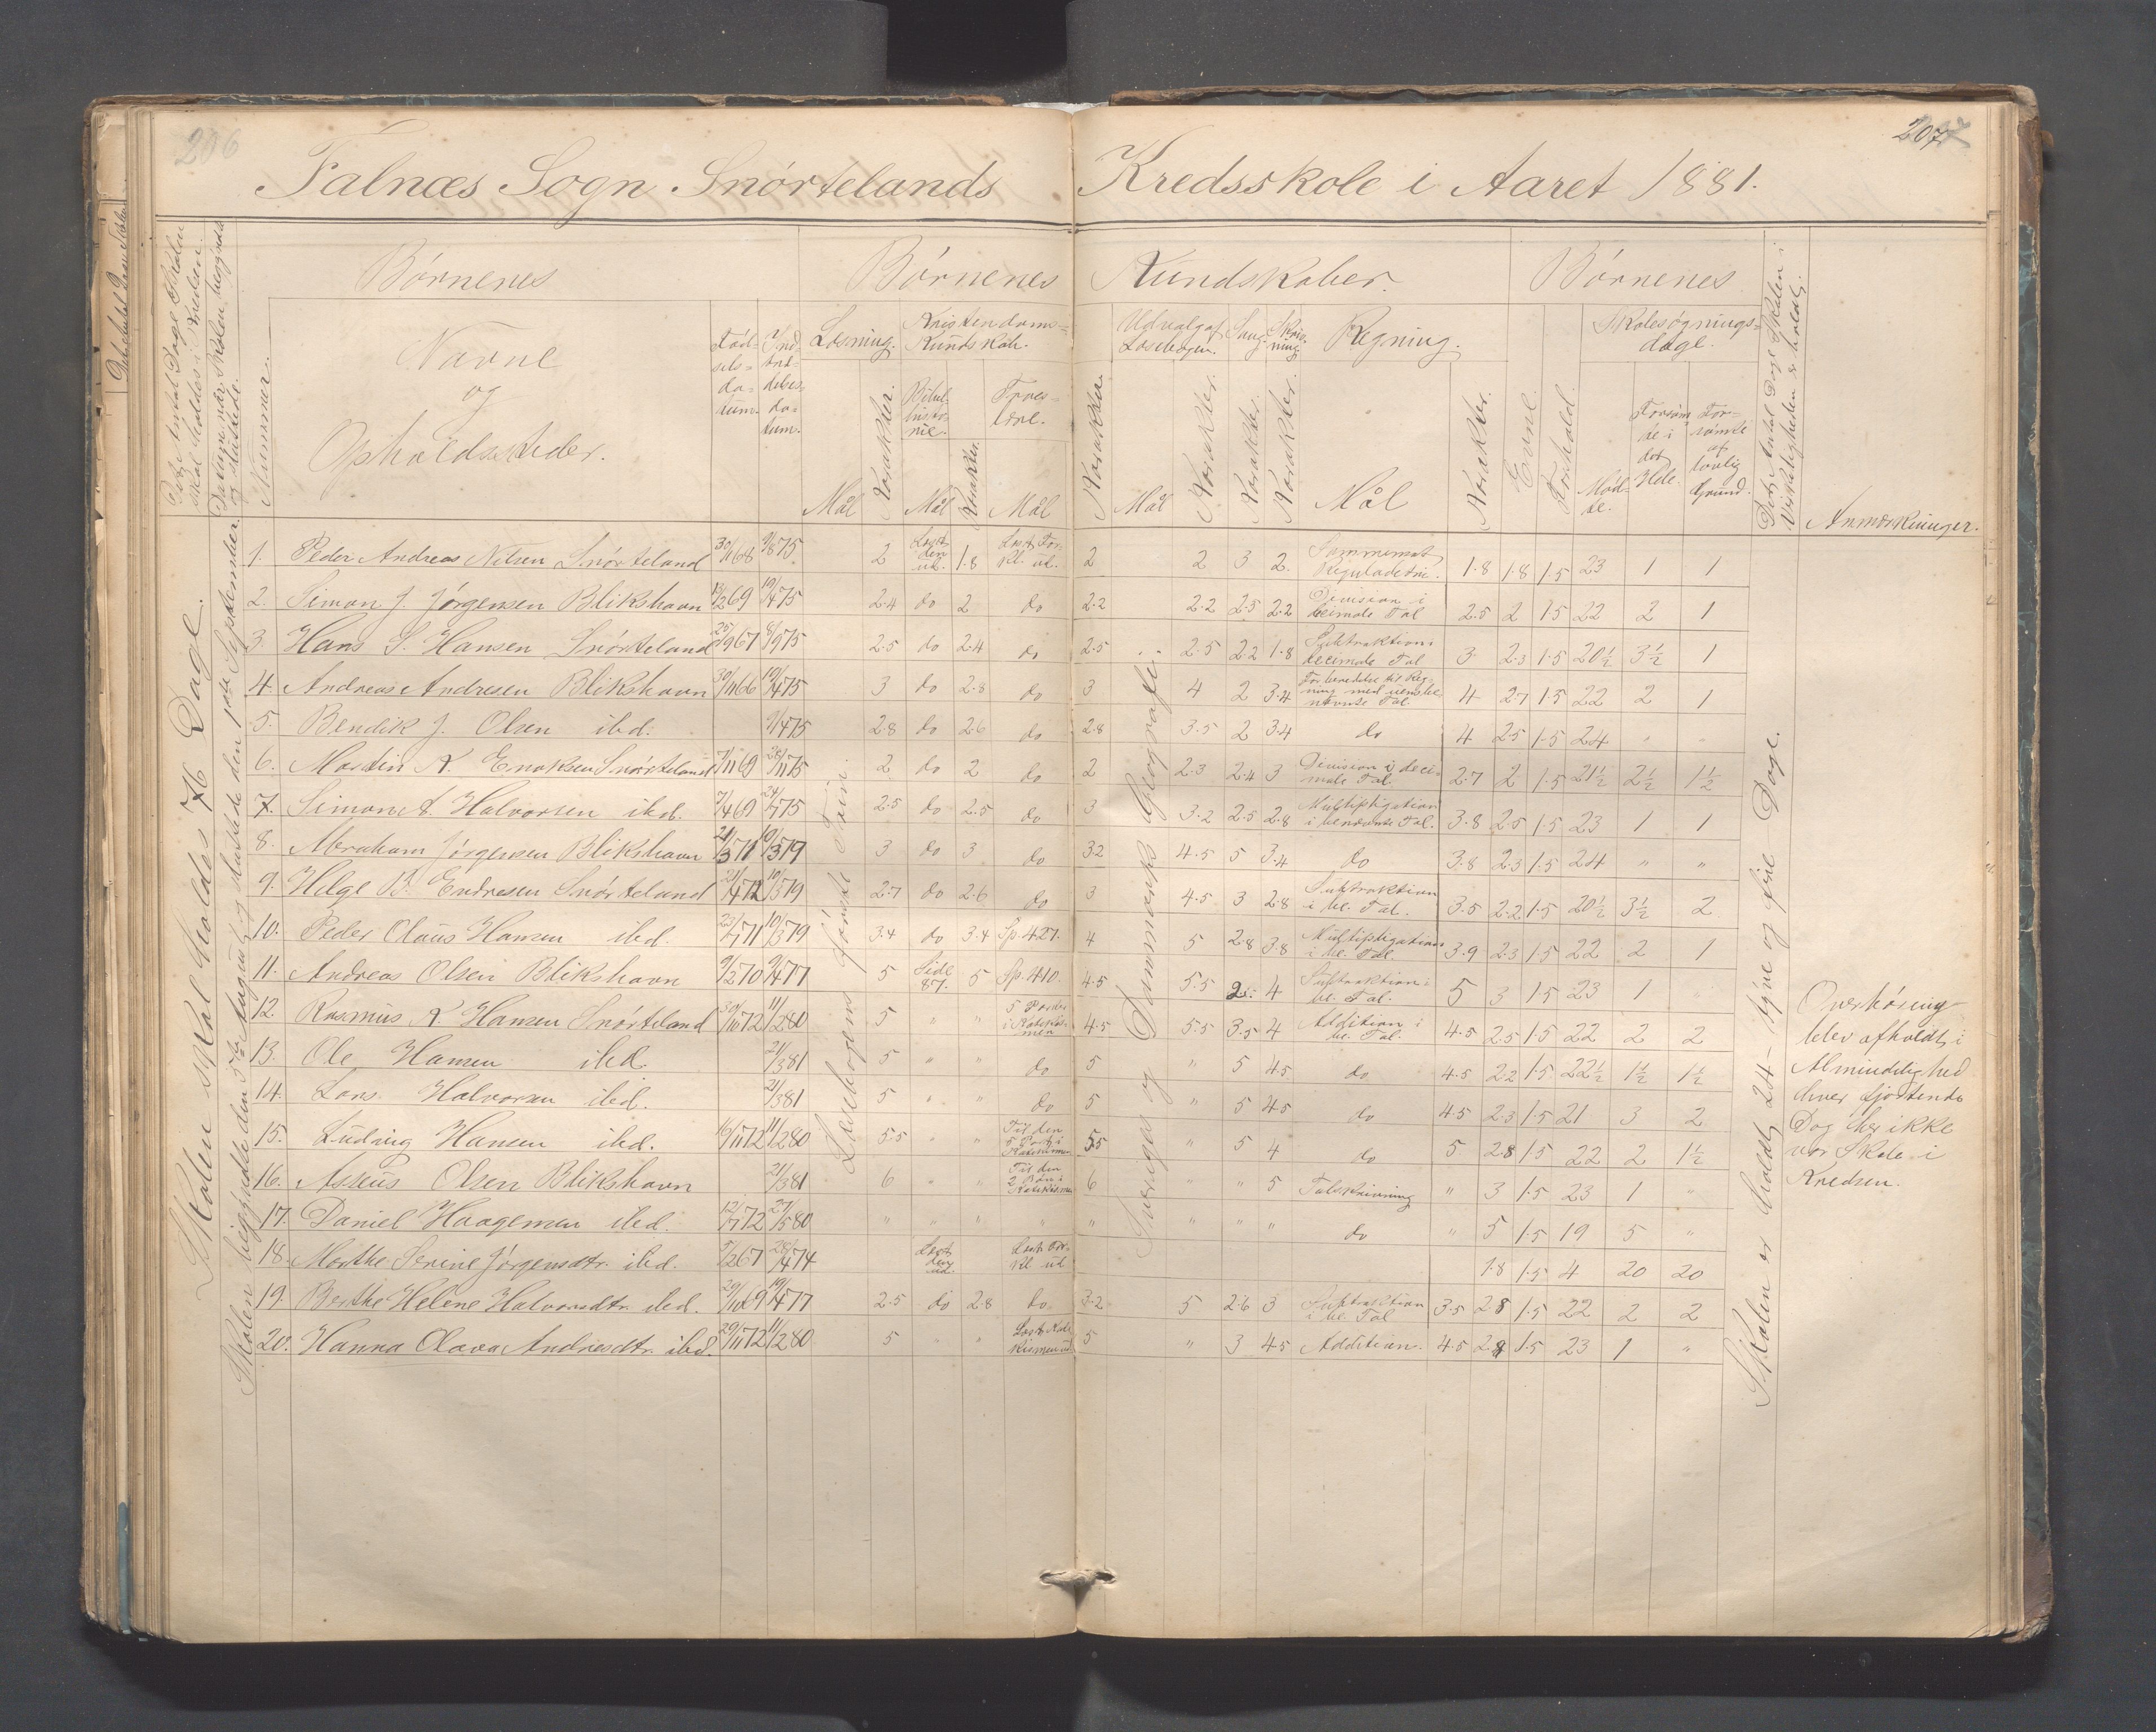 206
207
Falnæs Sogn Snørtelands Kredsskole i Aaret 1881.
Børnenes
Børnenes Kundskaber.
Børnenes
Navne
og
Opholdssteder.
Nummer.
Fød-
sels-
da-
tum.
Ind-
træd-
elses-
da-
tum.
Læsning.
Kristendoms-
Kundskab.
Udvalg af
Læsebogen.
Sang.
Skriv-
ning.
Regning.
Evne.
Forhold.
Skolesøgnings-
dage.
Bibel-
histo-
rie.
Troes-
lære.
Mål
Karakter.
Mål
Karakter.
Mål
Karakter.
Mål
Karakter.
Karakter.
Karakter.
Mål
Karakter.
Mød-
te.
Forsøm-
te i
det
Hele.
For-
sømte
af
lovlig
Grund.
Det Antal Dage Skolen i
Virkeligheden er holdt.
Anmærkninger.
Det Antal Dage Skolen
skal holdes i Kredsen.
Datum når Skolen begyndte
og sluttede.
Skolen skal holdes 76 Dage.
Skolen begyndte den 5te August og sluttede den 1ste September.
Læsebogens første Trin.
Sveriges og Danmarks Geografi.
Skolen er holdt 24 - tyve og fire Dage.
1. Peder Andreas Nilsen Snørteland 30/11 68 9/8 75 2 Læst den ud. 1.8 Læst For kl. ud. 2 2 3 2. Sammensat Reguladetri. 1.8 1.8 1.5 23 1 1
2. Simon J. Jørgensen Blikshavn 12/2 69 19/4 75 2.4 do 2 do 2.2 2.2 2.5 2.2 Division i decimale Tal 2.5 2 1.5 22 2 1
3. Hans S. Hansen Snørteland 25/9 67 8/9 75 2.5 do 2.4 do 2.5 2.5 2.2 1.8 Subtraktion i decimale Tal 3. 2.3 1.5 20½ 3½ 1
4. Andreas Andresen Blikshavn 30/11 66 19/4 75 3 do 2.8 do 3 4 2 3.4 4 2.7 1.5 22 2 1
5. Bendik J. Olsen ibd. 9/4 75 2.8 do 2.6 do 2.8 3.5 2 3.4 do 4 2.5 1.5 24 " "
6. Martin K. Enoksen Snørteland 7/11 69 26/11 75 2 do 2 do 2 2.3 2.4 3 Division i deci- male Tal. 2.7 2 1.5 21½ 2½ 1½
7. Simon A. Halvorsen ibd. 7/4 69 24/7 75 2.5 do 2.5 do 3 3.2 2.5 2.8 Multipligation i benævnte Tal. 3.8 2.5 1.5 23 1 1
8. Abraham Jørgensen Blikshavn 21/5 71 10/3 79 3 do 3 do 3.2 4.5 5 3.4 do 3.8 2.3 1.5 24 " "
9. Helge B. Endresen Snørteland 21/4 72 10/3 79 2.7 do 2.6 do 3 4.5 3 2.8 Subtraktion i be. Tal. 3.5 2.2 1.5 20½ 3½ 2
10. Peder Olaus Hansen ibd. 23/7 71 10/3 79 3.4 do 3.4 Sp. 427. 4 5 2.8 3.8 Multipligation i be. Tal. 3.9 2.3 1.5 22 2 1
11. Andreas Olsen Blikshavn 9/2 70 9/4 77 5 Side 87. 5 Sp. 410. 4.5 5.5 4 Subtraktion i be. Tal. 5 3 1.5 23 1 "
12. Rasmus K. Hansen Snørteland 30/10 72 11/2 80 5 " " 5 Parter i Katekis- men 4.5 5.5 3.5 4 Addition i be. Tal. 4.5 2.5 1.5 22 2 2
13. Ole Hansen ibd. 21/3 81 5 " " do 5 " 5 4.5 do 4.5 2.2 1.5 22½ 1½ 1½
14. Lars Halvorsen ibd. 21/3 81 5 " " do 5 " 5 4.5 do 4.5 2.3 1.5 21 3 2
15. Ludvig Hansen ibd. 16/11 72 11/2 80 5.5 " " Til den 5 Part i Katekismen 5.5 " 5 4 do 5 2.8 1.5 22 2 1½
16. Asseus Olsen Blikshavn 21/3 81 6 " " Til den 2 Bøn i Katekismen 6 " " 5 Talskrivning " 3 1.5 23 1 "
17. Daniel Haagensen ibd. 12/7 72 27/5 80 " " " " " " " " do " 5 1.5 19 5 "
18. Marthe Serine Jørgensdtr. ibd. 5/2 67 28/4 74 Læst den ud. Læst For- kl. ud 1.8 1.5 4 20 20
19. Berthe Helene Halvorsdtr. ibd. 29/10 69 19/4 77 2.5 do 2.8 do 3.2 5 2.6 3 Subtraktion i be. Tal 3.5 2.8 1.5 22 2 2
20. Hanna Olava Andresdtr. ibd. 29/11 72 11/2 80 5 " " Læst Kate- kismen ud. 5 " 3 4.5 Addition. 4.5 1.5 23 1 "
Overhøring
blev afholdt i
Almindelighed
hver fjortende
Dag her ikke
var Skole i
Kredsen.